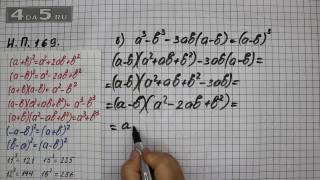 4DA5.RU
Н.П. 169.
(a+b)²=a²+2ab+b²
(a-b)²=a²-2ab+b²
(a+b)(a-b)=a²-b²
(a-b)(a²+ab+b²)=a³-b³
(a+b)(a²-ab+b²)=a³+b³
(-a-b)²=(a+b)²
(b-a)²=(a-b)²
11²=121 15²=225
12²=144 16²=256
б) a³-b³-3ab(a-b)=(a-b)³
(a-b)(a²+ab+b²)-3ab(a-b)=
=(a-b)(a²+ab+b²-3ab)=
=(a-b)(a²-2ab+b²)=
=a